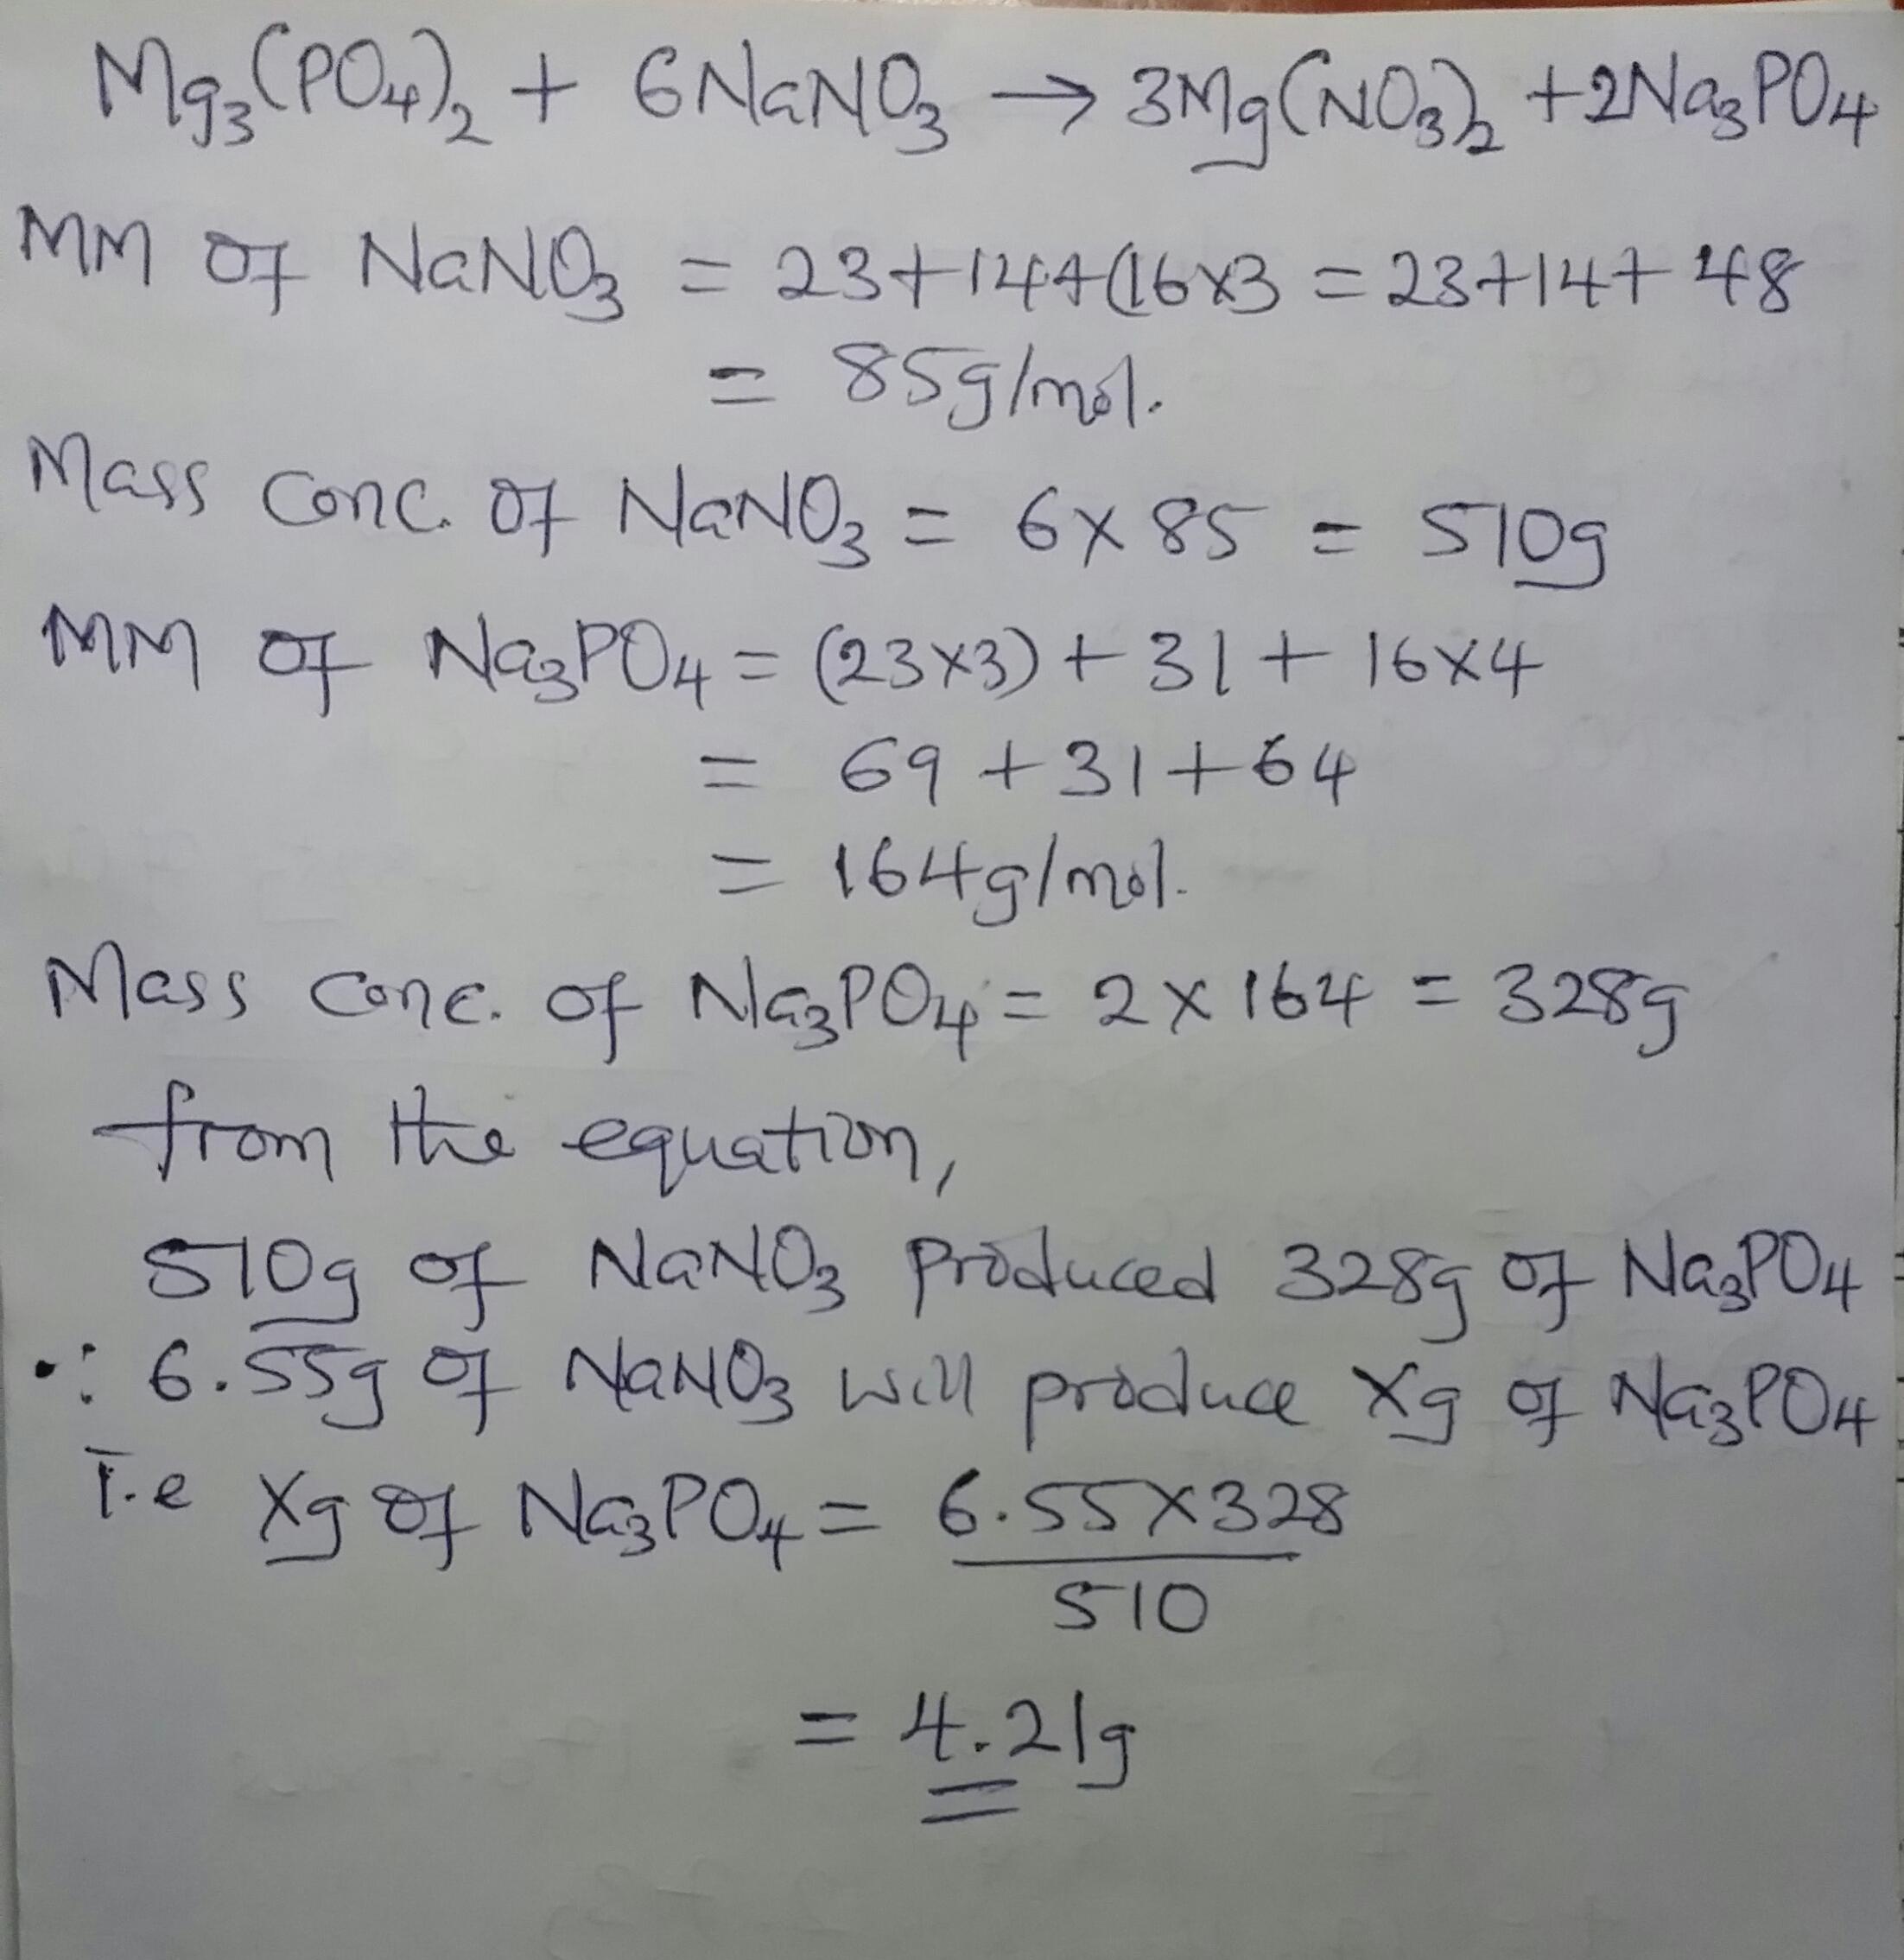 Mg₃(PO₄)₂ + 6NaNO₃ → 3Mg(NO₃)₂ + 2Na₃PO₄
MM of NaNO₃ = 23+14+(16x3 = 23+14+48
= 85g/mol.
Mass conc. of NaNO₃ = 6x85 = 510g
MM of Na₃PO₄ = (23x3) + 31 + 16x4
= 69 + 31 + 64
= 164g/mol.
Mass conc. of Na₃PO₄ = 2 x 164 = 328g
from the equation,
510g of NaNO₃ produced 328g of Na₃PO₄
∴ 6.55g of NaNO₃ will produce Xg of Na₃PO₄
I.e Xg of Na₃PO₄ = 6.55X328
510
= 4.21g